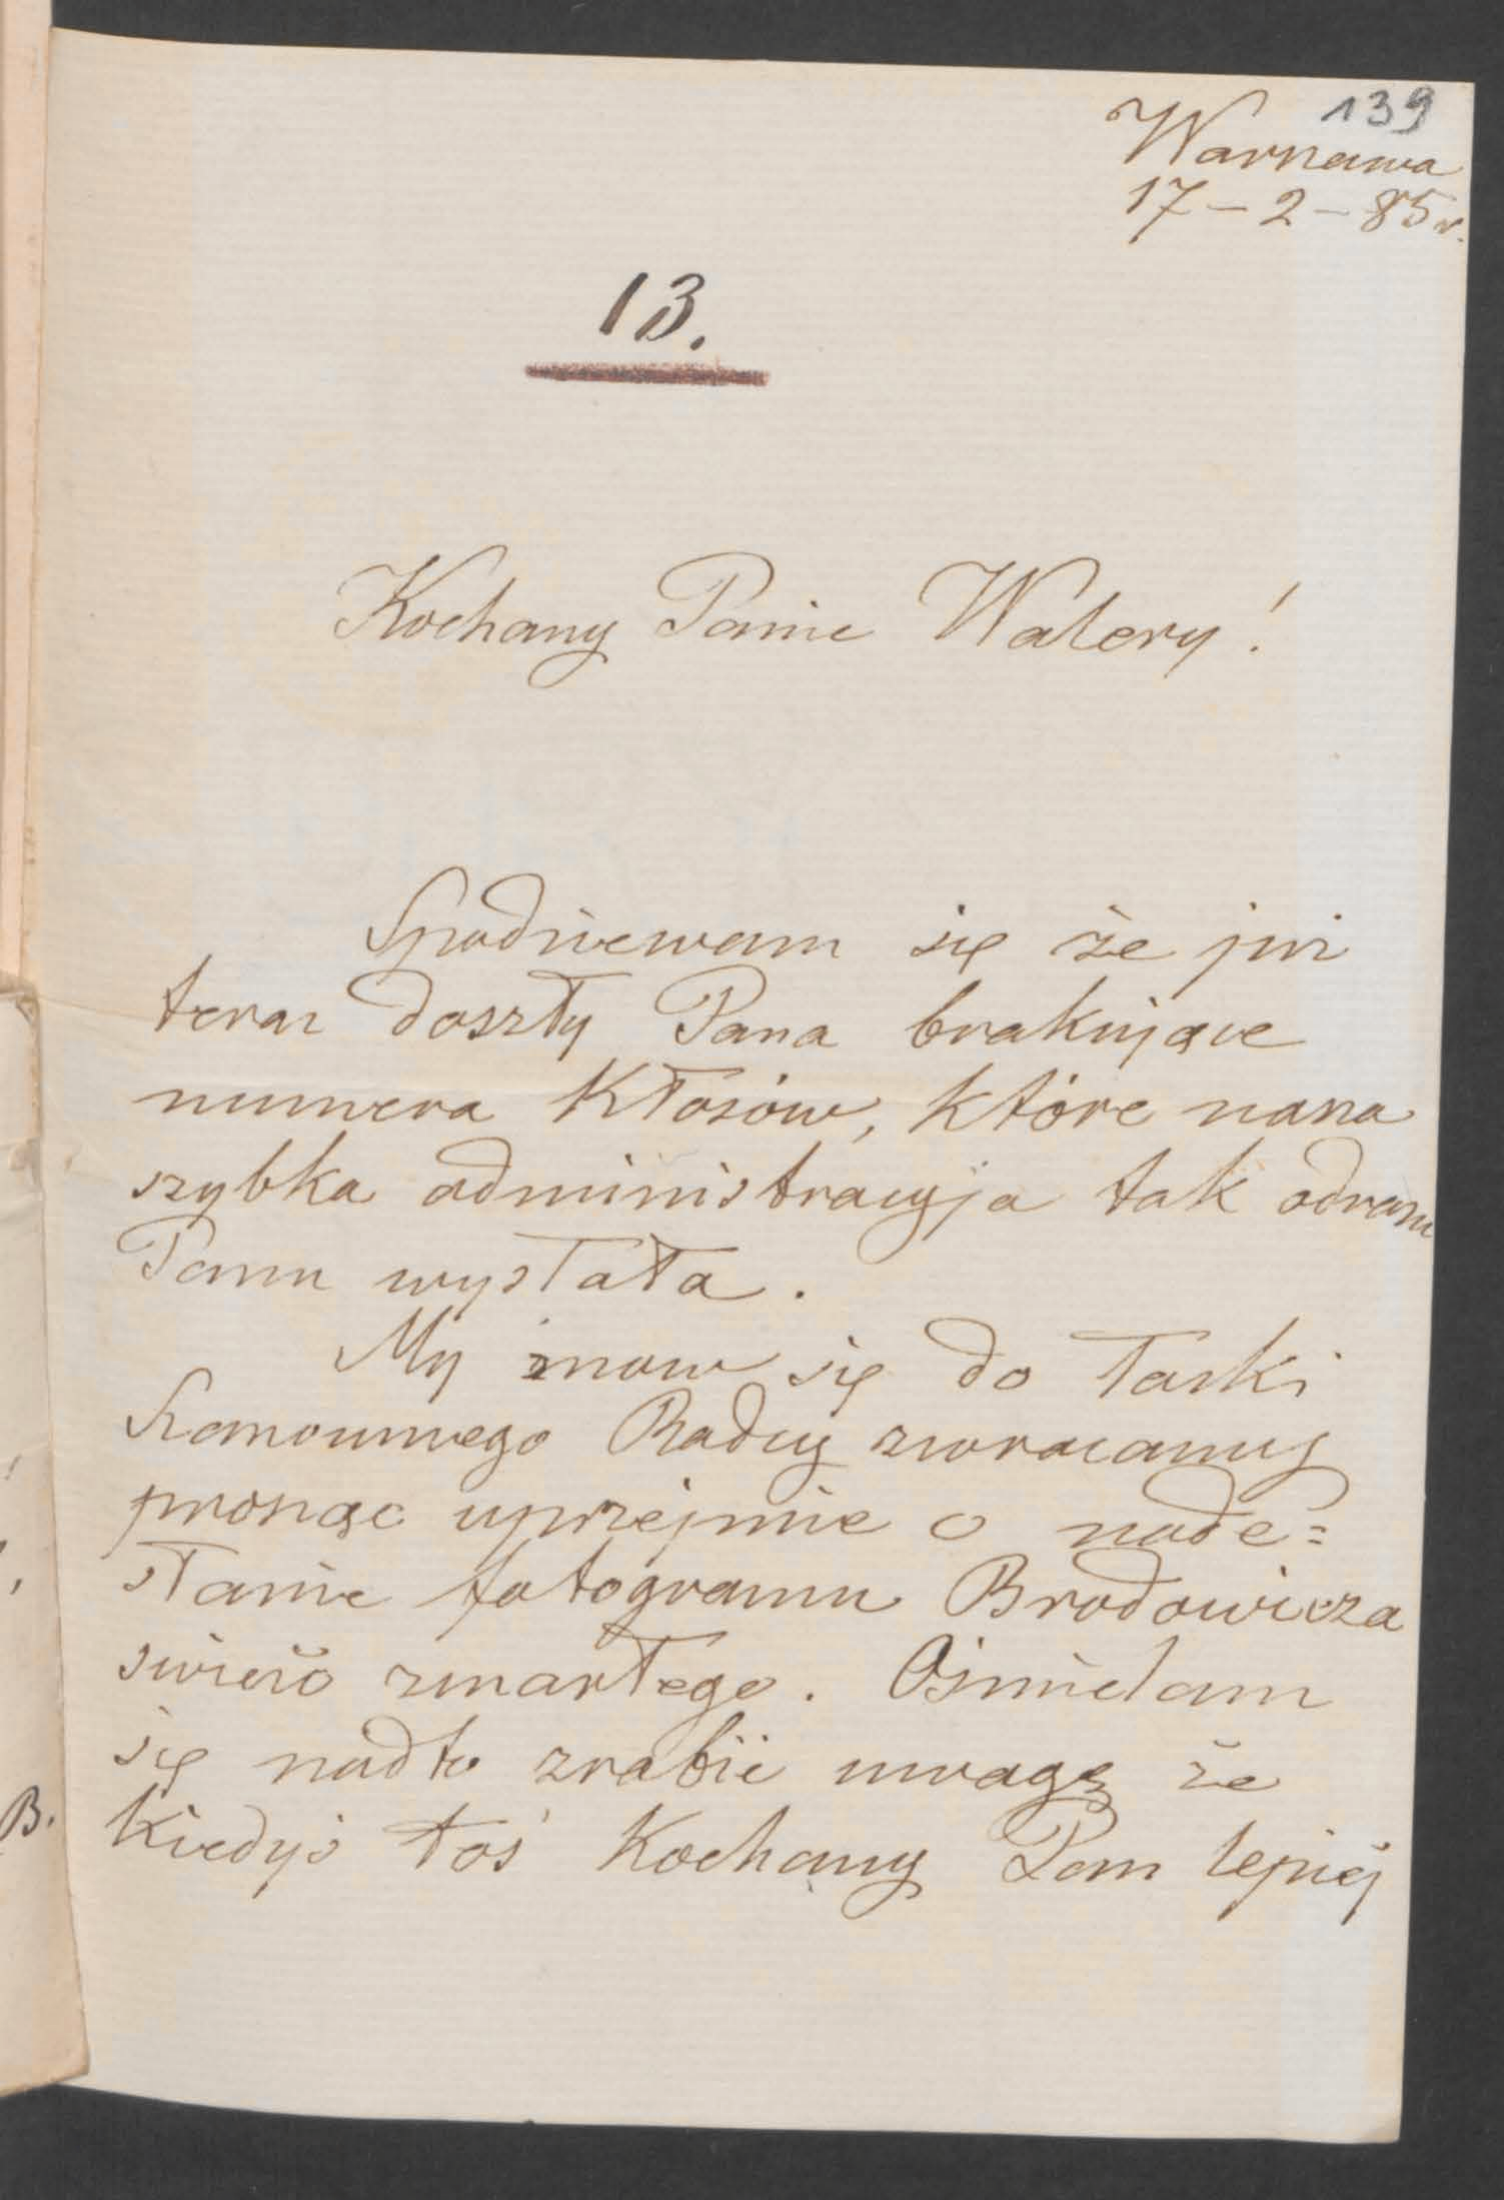 139
Warszawa
17 – 2 – 85 r.
13.
Kochany Panie Walery!
Spodziewam się że już
teraz doszły Pana brakujące
numera Kłosów, które nasza
szybka administracyja tak odrazu
Panu wysłała.
My znow się do łaski
Szanownego Radcy zwracamy
prosząc uprzejmie o nade=
słanie fotogramu Brodowicza
świeżo zmarłego. Ośmielam
się nadto zrobić uwagę że
kiedyś toś Kochany Pan lepiej
B.